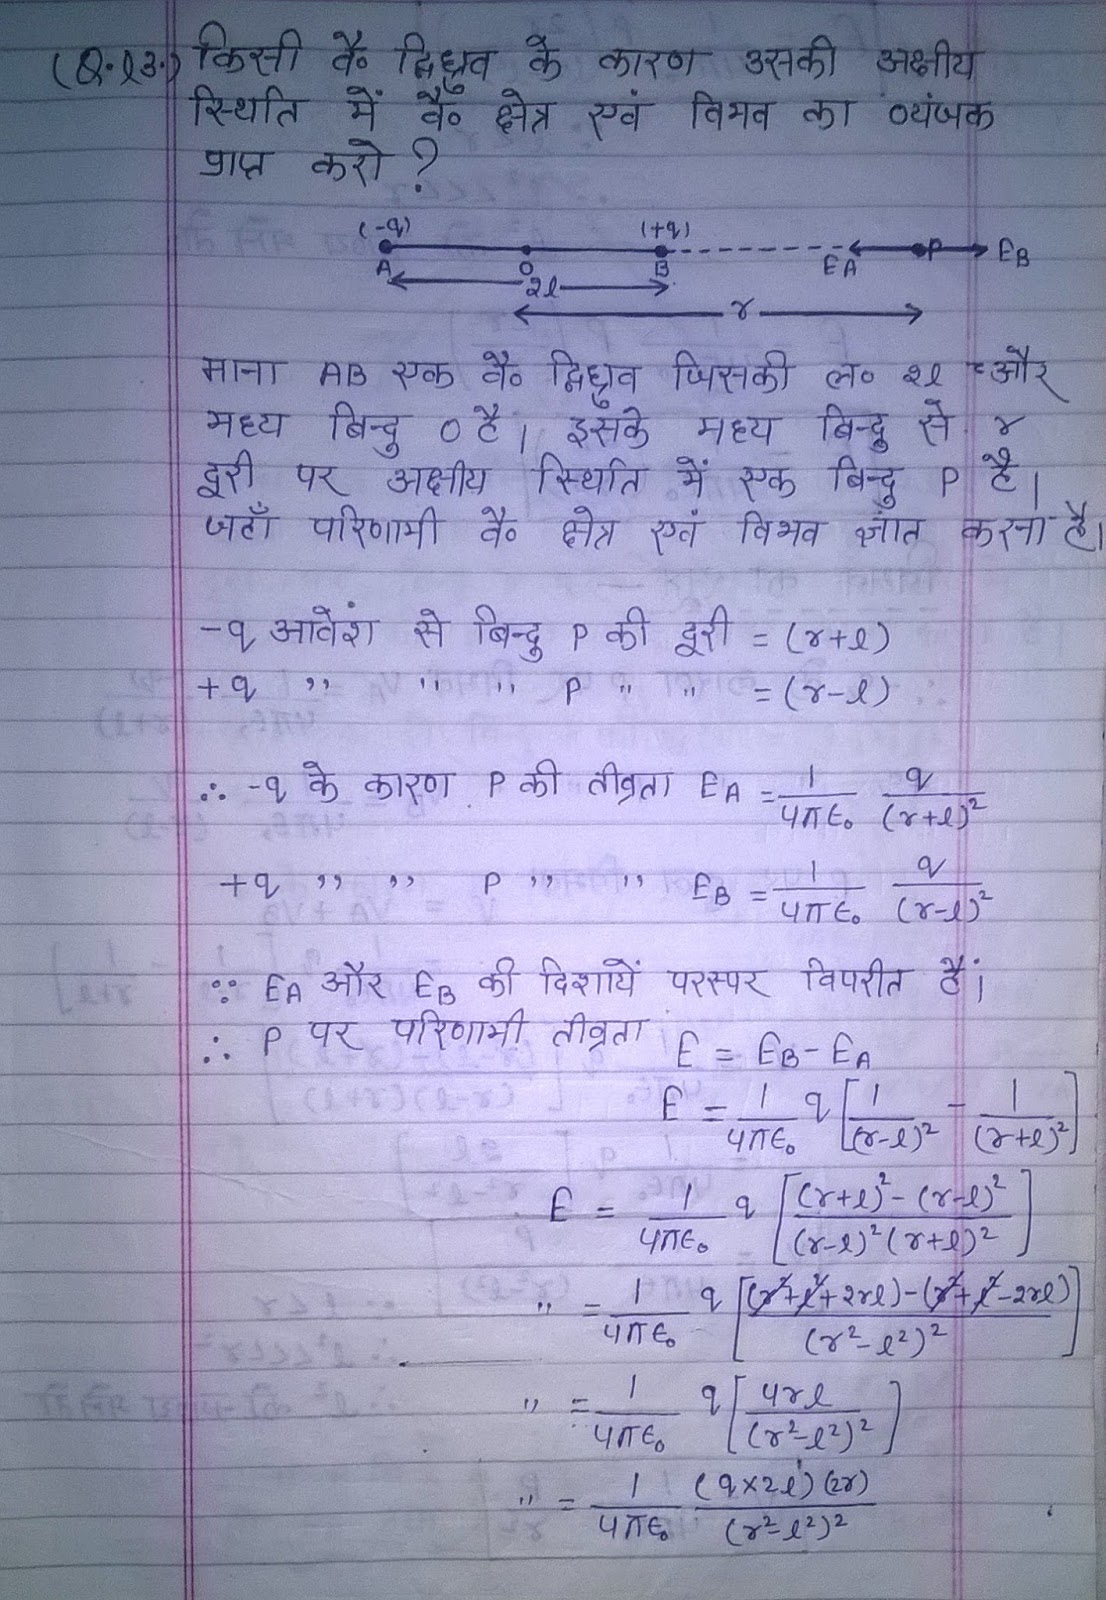 (Q.13.) किसी वै० द्विध्रुव के कारण उसकी अक्षीय
स्थिति में वै० क्षेत्र एवं विभव का व्यंजक
प्राप्त करो?
(-q) (+q)
A O B EA P EB
2l
r
माना AB एक वै० द्विध्रुव जिसकी ल० 2l और
मध्य बिन्दु O है। इसके मध्य बिन्दु से r
दूरी पर अक्षीय स्थिति में एक बिन्दु P है।
जहाँ परिणामी वै० क्षेत्र एवं विभव ज्ञात करना है।
-q आवेश से बिन्दु P की दूरी = (r+l)
+q ,, ,, ,, P ,, ,, = (r-l)
∴ -q के कारण P की तीव्रता EA = 1/4πε₀ q/(r+l)²
+q ,, ,, P ,, ,, EB = 1/4πε₀ q/(r-l)²
∵ EA और EB की दिशायें परस्पर विपरीत हैं।
∴ P पर परिणामी तीव्रता E = EB - EA
E = 1/4πε₀ q [1/(r-l)² - 1/(r+l)²]
E = 1/4πε₀ q [(r+l)² - (r-l)² / (r-l)² (r+l)²]
,, = 1/4πε₀ q [(r²+l²+2rl) - (r²+l²-2rl) / (r²-l²)²]
,, = 1/4πε₀ q [4rl / (r²-l²)²]
,, = 1/4πε₀ (q×2l)(2r) / (r²-l²)²